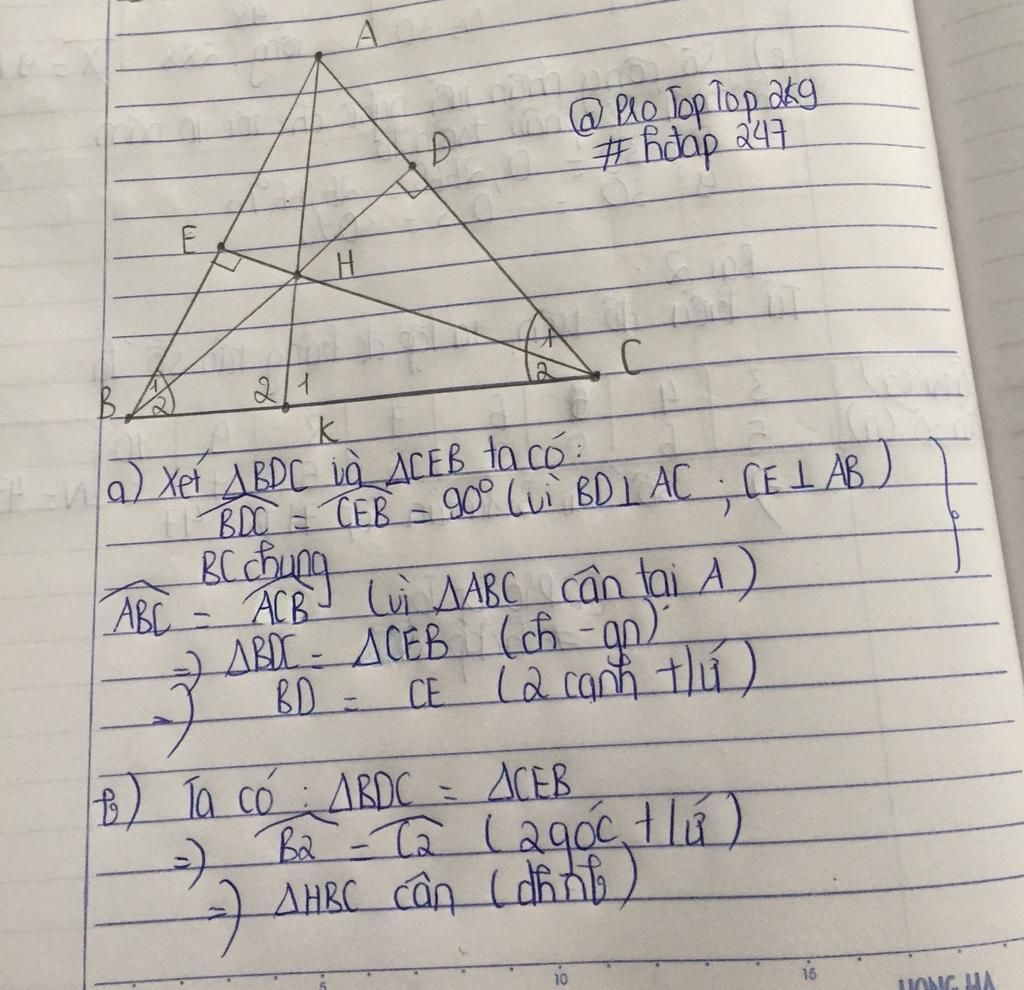 A
@ Pro Top Top 2k9
# hdap 247
D
E
H
1
2
C
1
2
2 1
B
K
a) Xét ΔBDC và ΔCEB ta có:
BDC = CEB = 90° (vì BD ⊥ AC ; CE ⊥ AB)
BC chung
ABC = ACB (vì ΔABC cân tại A)
=> ΔBDC = ΔCEB (ch - gn)
=> BD = CE (2 cạnh t/ứ)
b) Ta có : ΔBDC = ΔCEB
=> B2 = C2 (2 góc t/ứ)
=> ΔHBC cân (dhnb)
5 10 15
HONG HA